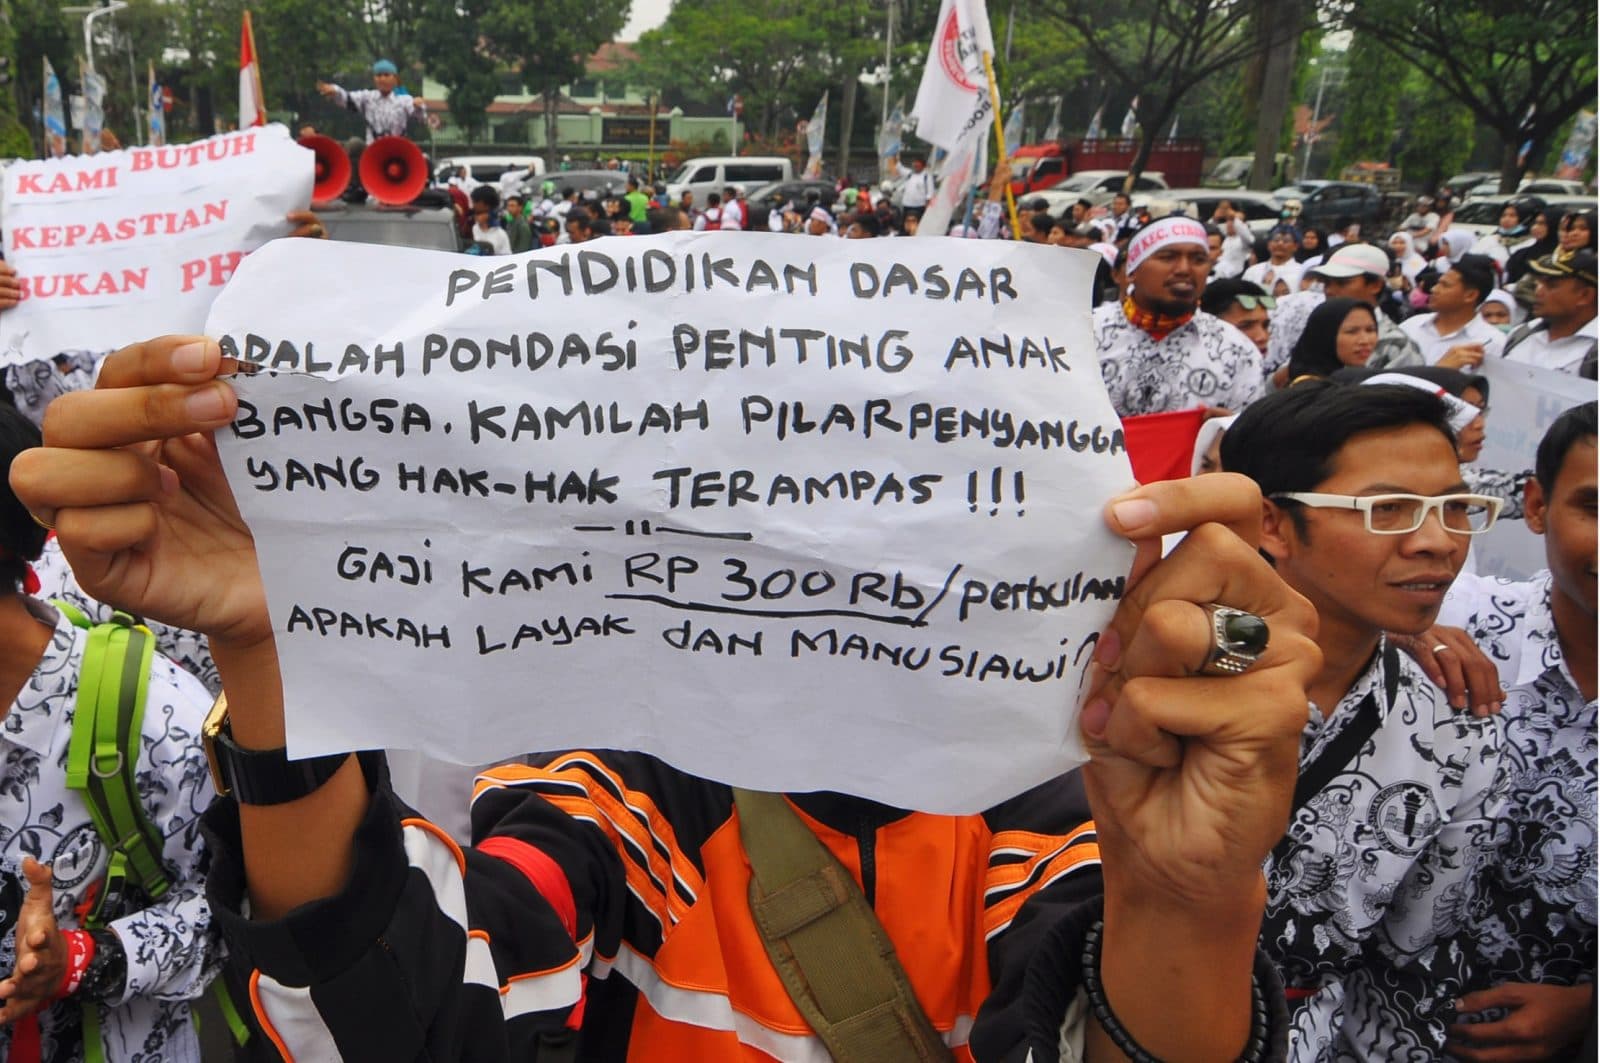 KAMI BUTUH
KEPASTIAN
BUKAN
PENDIDIKAN DASAR
ADALAH PONDASI PENTING ANAK
BANGSA. KAMILAH PILAR PENYANGGA
YANG HAK-HAK TERAMPAS !!!
GAJI KAMI RP 300 Rb/perbulan
APAKAH LAYAK dAN MANUSIAWI?